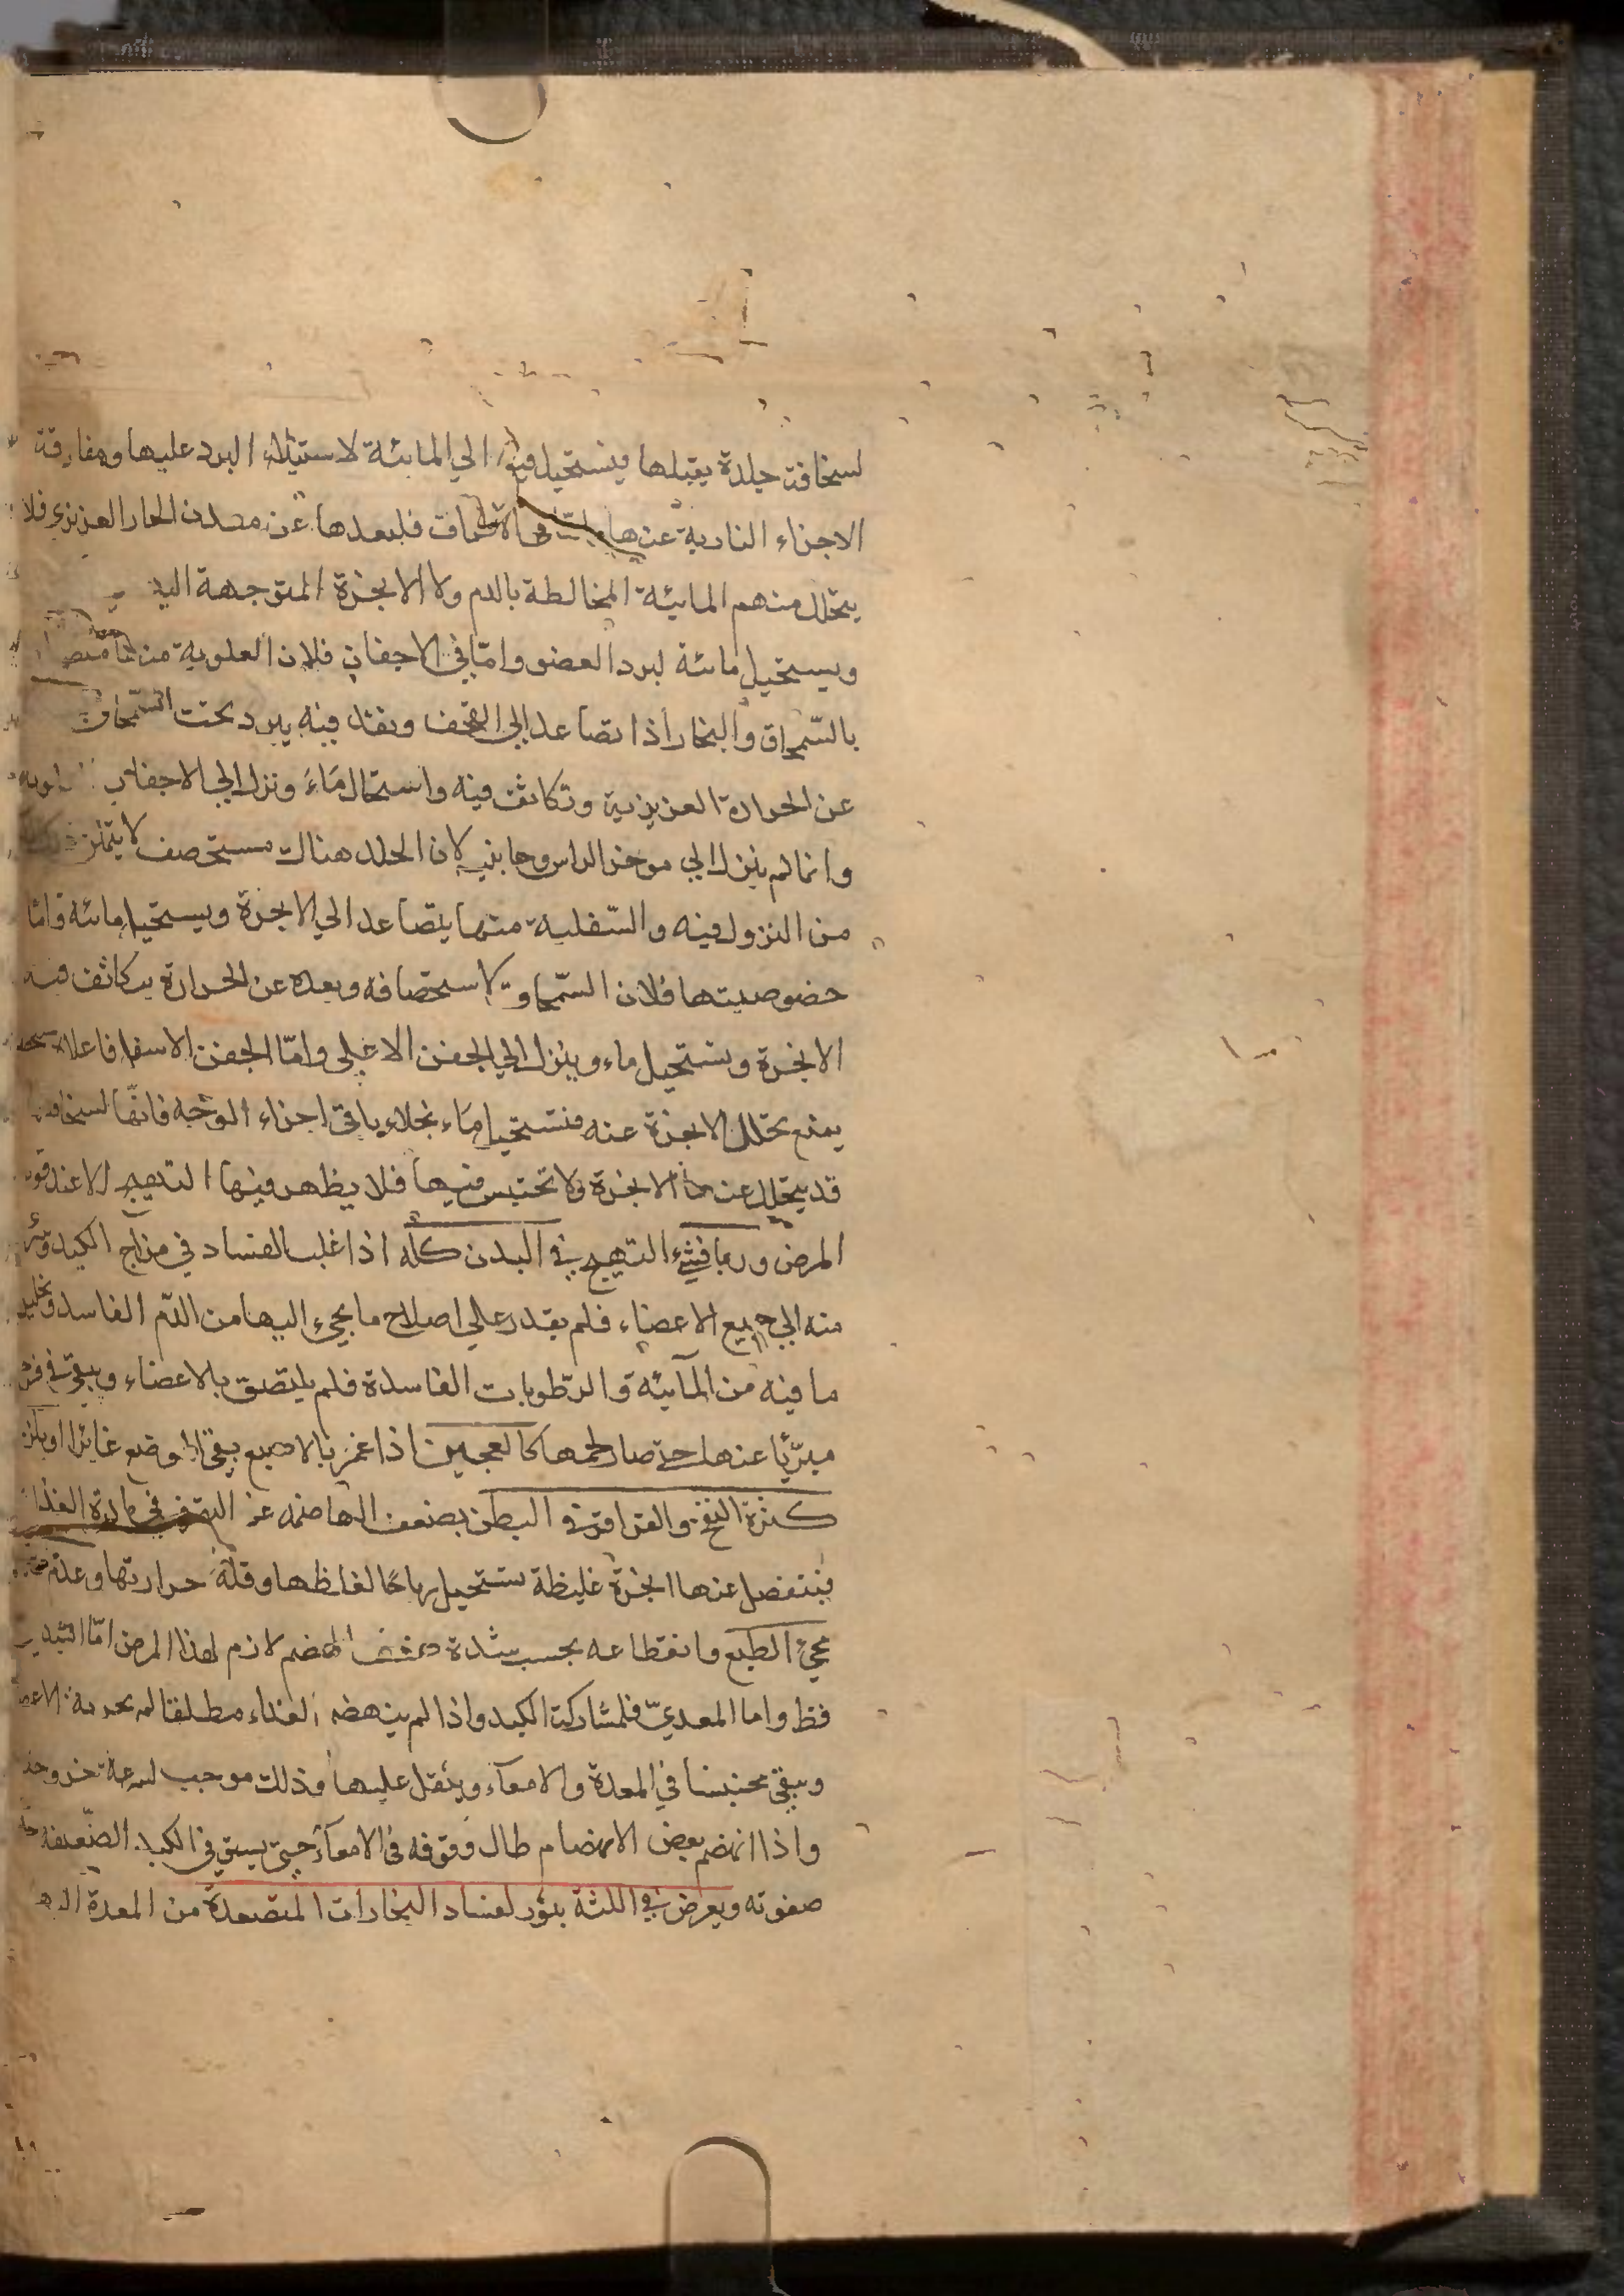 لسخافة جلدة يقبلها فيستحيل فيها الي المائية لاستيلاء البرد عليها ومفارقة
الاجزاء النارية عنها واما في الاطراف فلبعدها عن معدن الحار الغريزي فلا
يتحلل منهم المائية المخالطة بالدم ولا الابخرة المتوجهة اليه
ويستحيل مائية لبرد العضو وامّا في الاجفان فلان العلوية منها متصلة
بالسّمحاق والبخار اذا تصاعد الي القحف ونفذ فيه يبرد تحت السّمحاق
عن الحرارة الغريزية وتكاثف فيه واستحال مَاءً ونزل الي الاجفان
وانما لم ينزل الي موخر الراس وجانبيه لان الجلد هناك مستحصف لا يتمكن
من النزول فيه والسّفلية منها يتصاعد الي الابخرة ويستحيل مائية وامّا
خصوصيتها فلان السّمحاق لاستحصافه وبعده عن الحرارة يتكاثف فيه
الابخرة وتستحيل ماء وينزل الي الجفن الاعلي وامّا الجفن الاسفل فاعلاه
يمنع تحلل الابخرة عنه فتستحيل مَاء بخلاف باقي اجزاء الوجه فانّها لسخافتها
قد يتحلل عنها الابخرة ولا تحتبس فيها فلا يظهر فيها التهيج الا عند قوة
المرض وربما فشي التهيج في البدن كلّه اذا غلب الفساد في مزاج الكبد
منه الي جميع الاعضاء فلم يقدر علي اصلاح ما يجيء اليها من الدّم الفاسد وتحليل
ما فيه من المآئية والرّطوبات الفاسدة فلم يلتصق بالاعضاء ويبقي في
مبرّيًا عنها حتي صار لحمها كالعجين اذا غمز بالاصبع بقي الموضع غائرا
كثرة النفخ والقراقر في البطن بضعف الهاضمة عن التصرف في مادة الغذاء
فينفصل عنها ابخرة غليظة تستحيل رياحًا لغلظها وقلّة حرارتها
مجيء الطبع وانقطاعه بحسب شدة ضعف الهضم لازم لهذا المرض امّا
فظ واما المعديّ فلمشاركة الكبد واذا لم ينهضم الغذاء مطلقا لم
ويبقي محتبسا في المعدة والامعآء ويثقل عليها وذلك موجب لسرعة خروجه
واذا انهضم بعض الانهضام طال وقوفه في الامعآء حتي يستقي الكبد الضّعيفة
صفوته ويعرض في اللثة بثور لفساد البخارات المتصعدة من المعدة